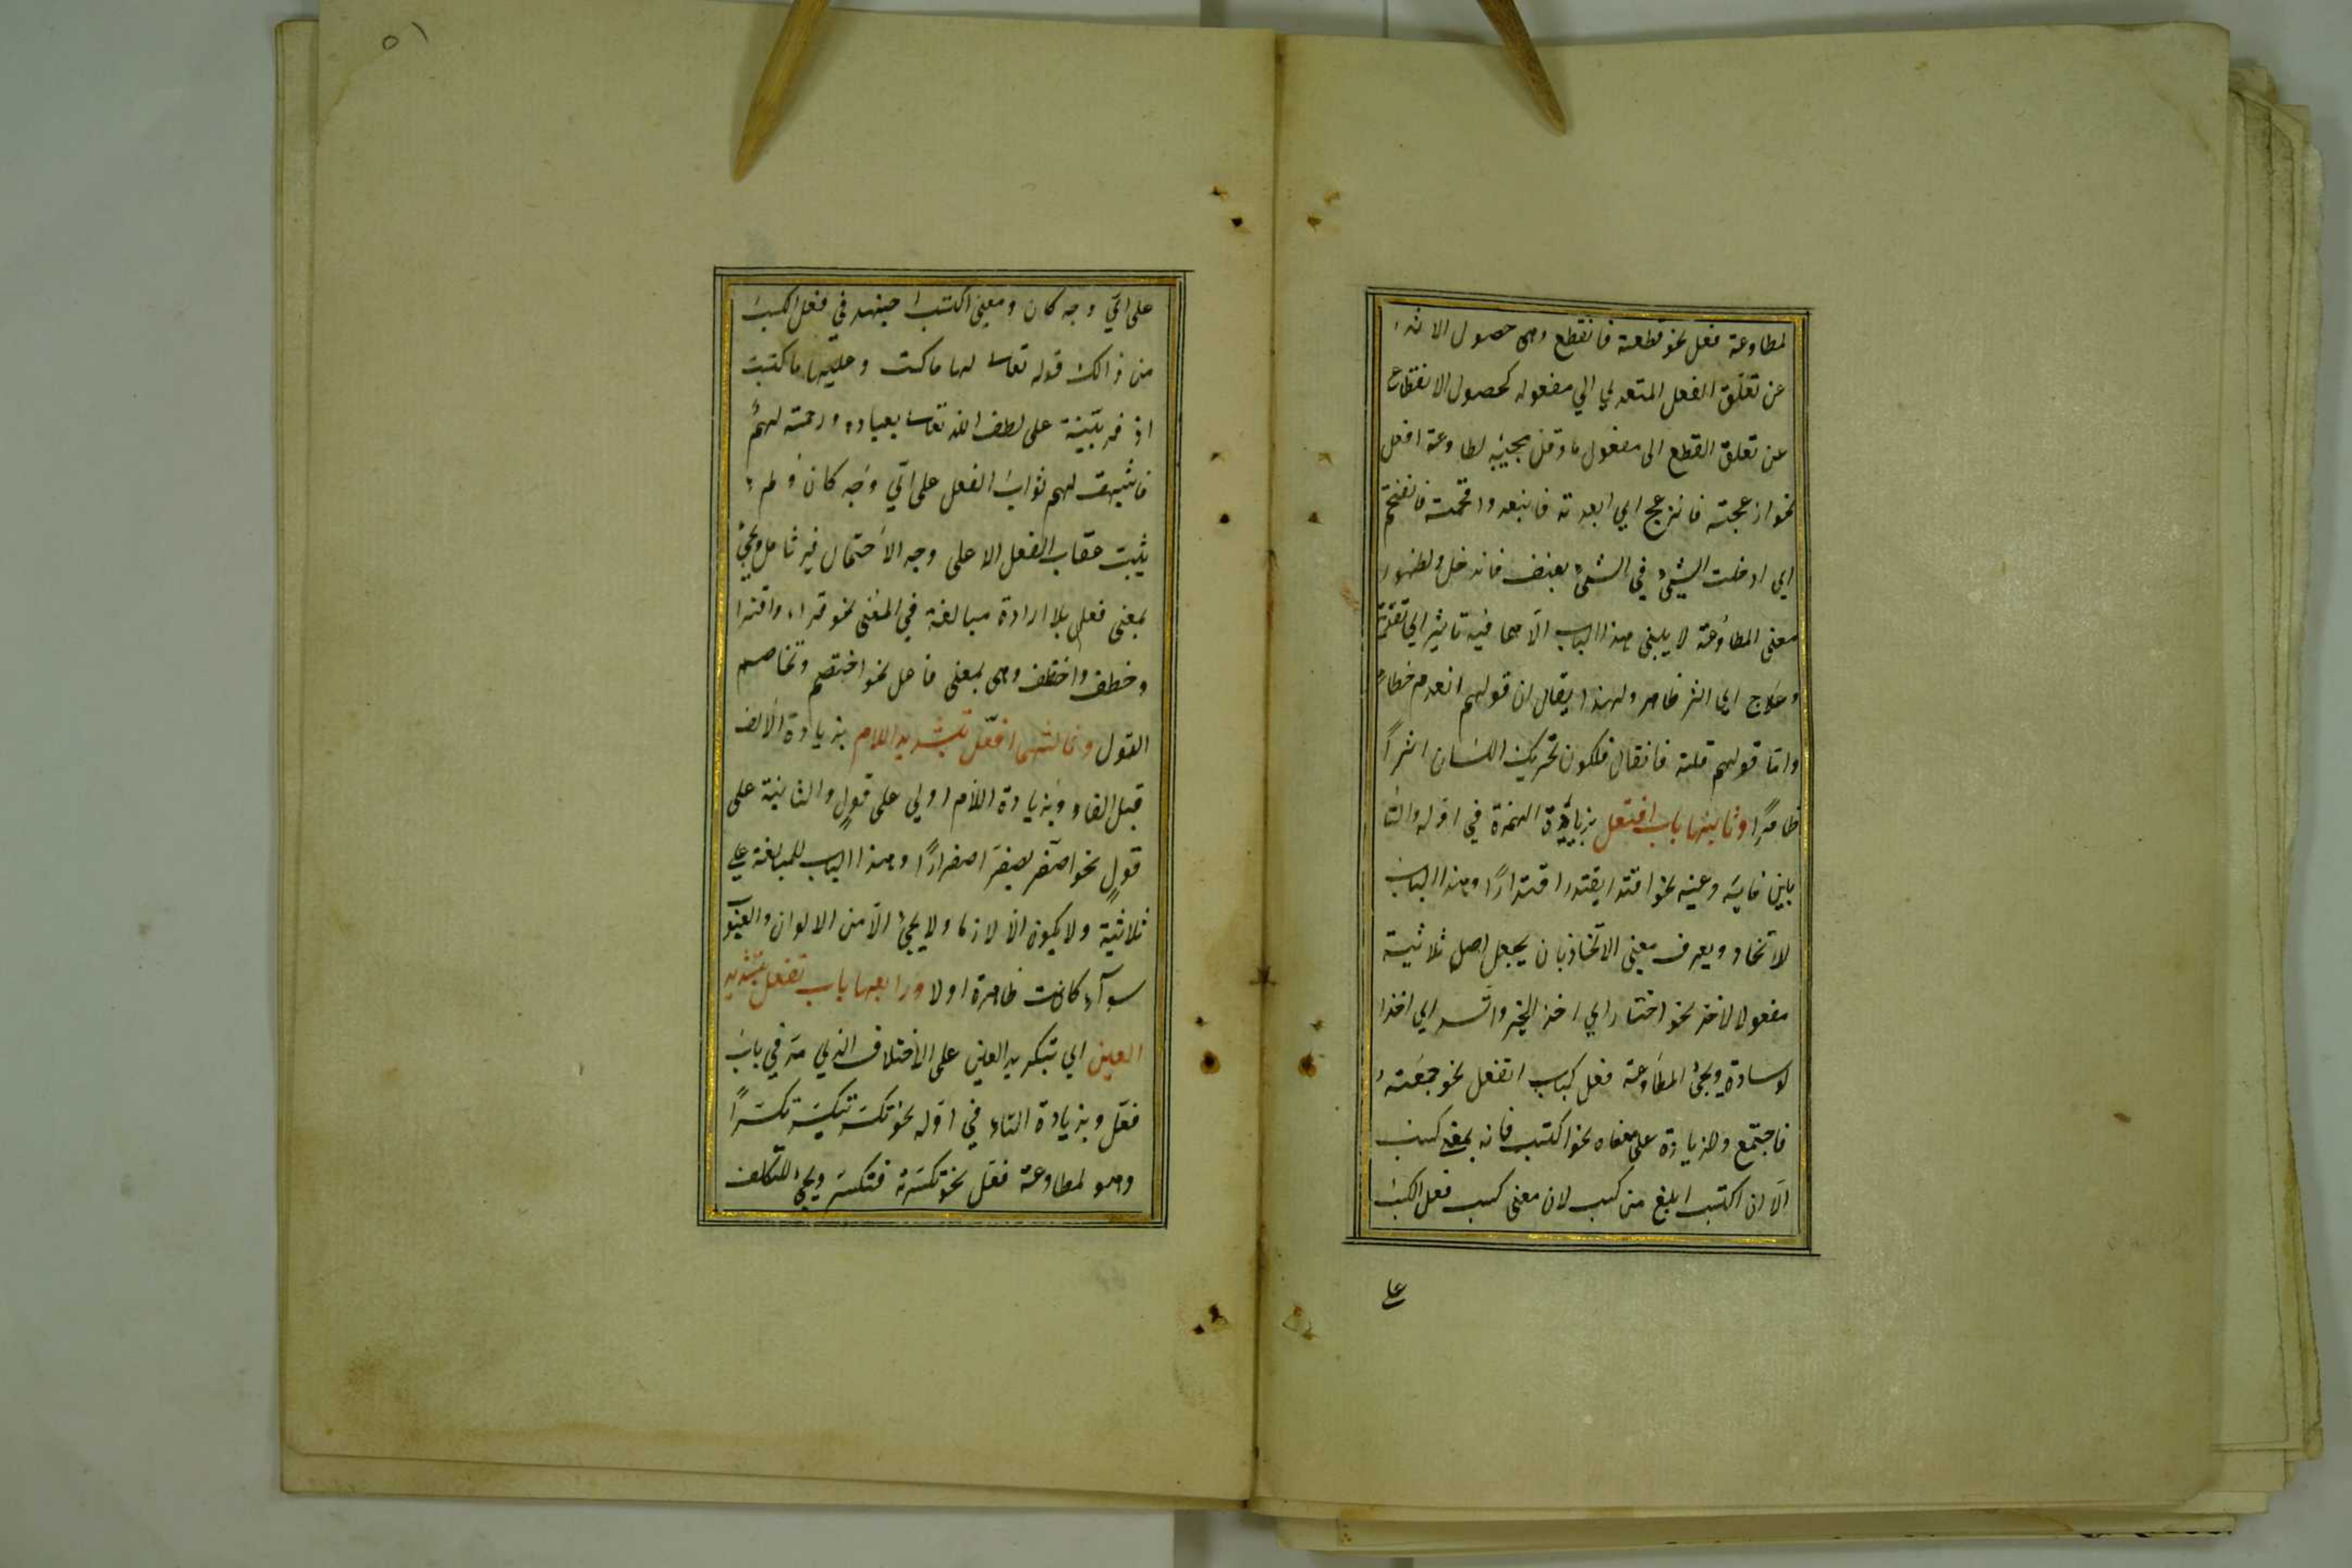 لمطاوعة فعل نحو قطعته فانقطع وهى حصول الاثر
عن تعلق الفعل المتعدي الي مفعوله كحصول الانقطاع
عن تعلق القطع الى مفعول ما وقل مجيئه لمطاوعة افعل
نحو ازعجته فانزعج اي ابعدته فانبعد واقحمته فانقحم
اي ادخلت الشيء في الشيء بعنف فاندخل ولظهور
معنى المطاوعة لا يبنى هذا الباب الا مما فيه تاثير اي
وعلاج اي اثر ظاهر ولهذا يقال ان قولهم انعدم خطاء
واما قولهم قلته فانقال فلكون تحريك اللسان اثراً
ظاهرًا وثانيها باب افتعل بزيادة الهمزة في اوله والتا
بين فايه وعينه نحو اقتدر يقتدر اقتدارًا وهذا الباب
لاتخاذ ويعرف معنى الاتخاذ بان يجعل اصل ثلاثية
مفعولا لاخذ نحو اختار اي اخذ الخير واتسد اي اخذ
لوسادة ويجئ المطاوعة فعل كباب انفعل نحو جمعته
فاجتمع ولزيادة على معناه نحو اكتسب فانه بمعنى كسب
الا ان اكتسب ابلغ من كسب لان معنى كسب فعل الكسب
على
٥١
على اي وجه كان ومعنى اكتسب اجتهد في فعل الكسب
من ذالك قوله تعالى لها ما كسبت وعليها ما اكتسبت
اذ فيه تنبيه على لطف الله تعالى بعباده ورحمته لهم
فاثبت لهم ثواب الفعل على اي وجه كان ولم
يثبت عقاب الفعل الا على وجه الاحتمال فيه تامل ويجئ
بمعنى فعل بلا ارادة مبالغة في المعنى نحو قراء واقترا
وخطف واختطف وهى بمعنى فاعل نحو اختصم وتخاصم
القول وثالثها افعلّ بتشديد اللام بزيادة الالف
قبل الفاء وبزيادة اللام اولي على قولٍ والثانية على
قولٍ نحو اصفر يصفر اصفرارًا وهذا الباب للمبالغة على
ثلاثية ولا يكون الا لازما ولا يجئ الا من الالوان والعيو
سوآء كانت ظاهرة اولا ورابعها باب تفعل بتشديد
العين اي بتكرير العين على الاختلاف الذي مر في باب
فعّل وبزيادة التاء في اوله نحو تكسر يتكسر تكسرًا
وهو لمطاوعة فعّل نحو كسرته فتكسر ويجئ للتكلف